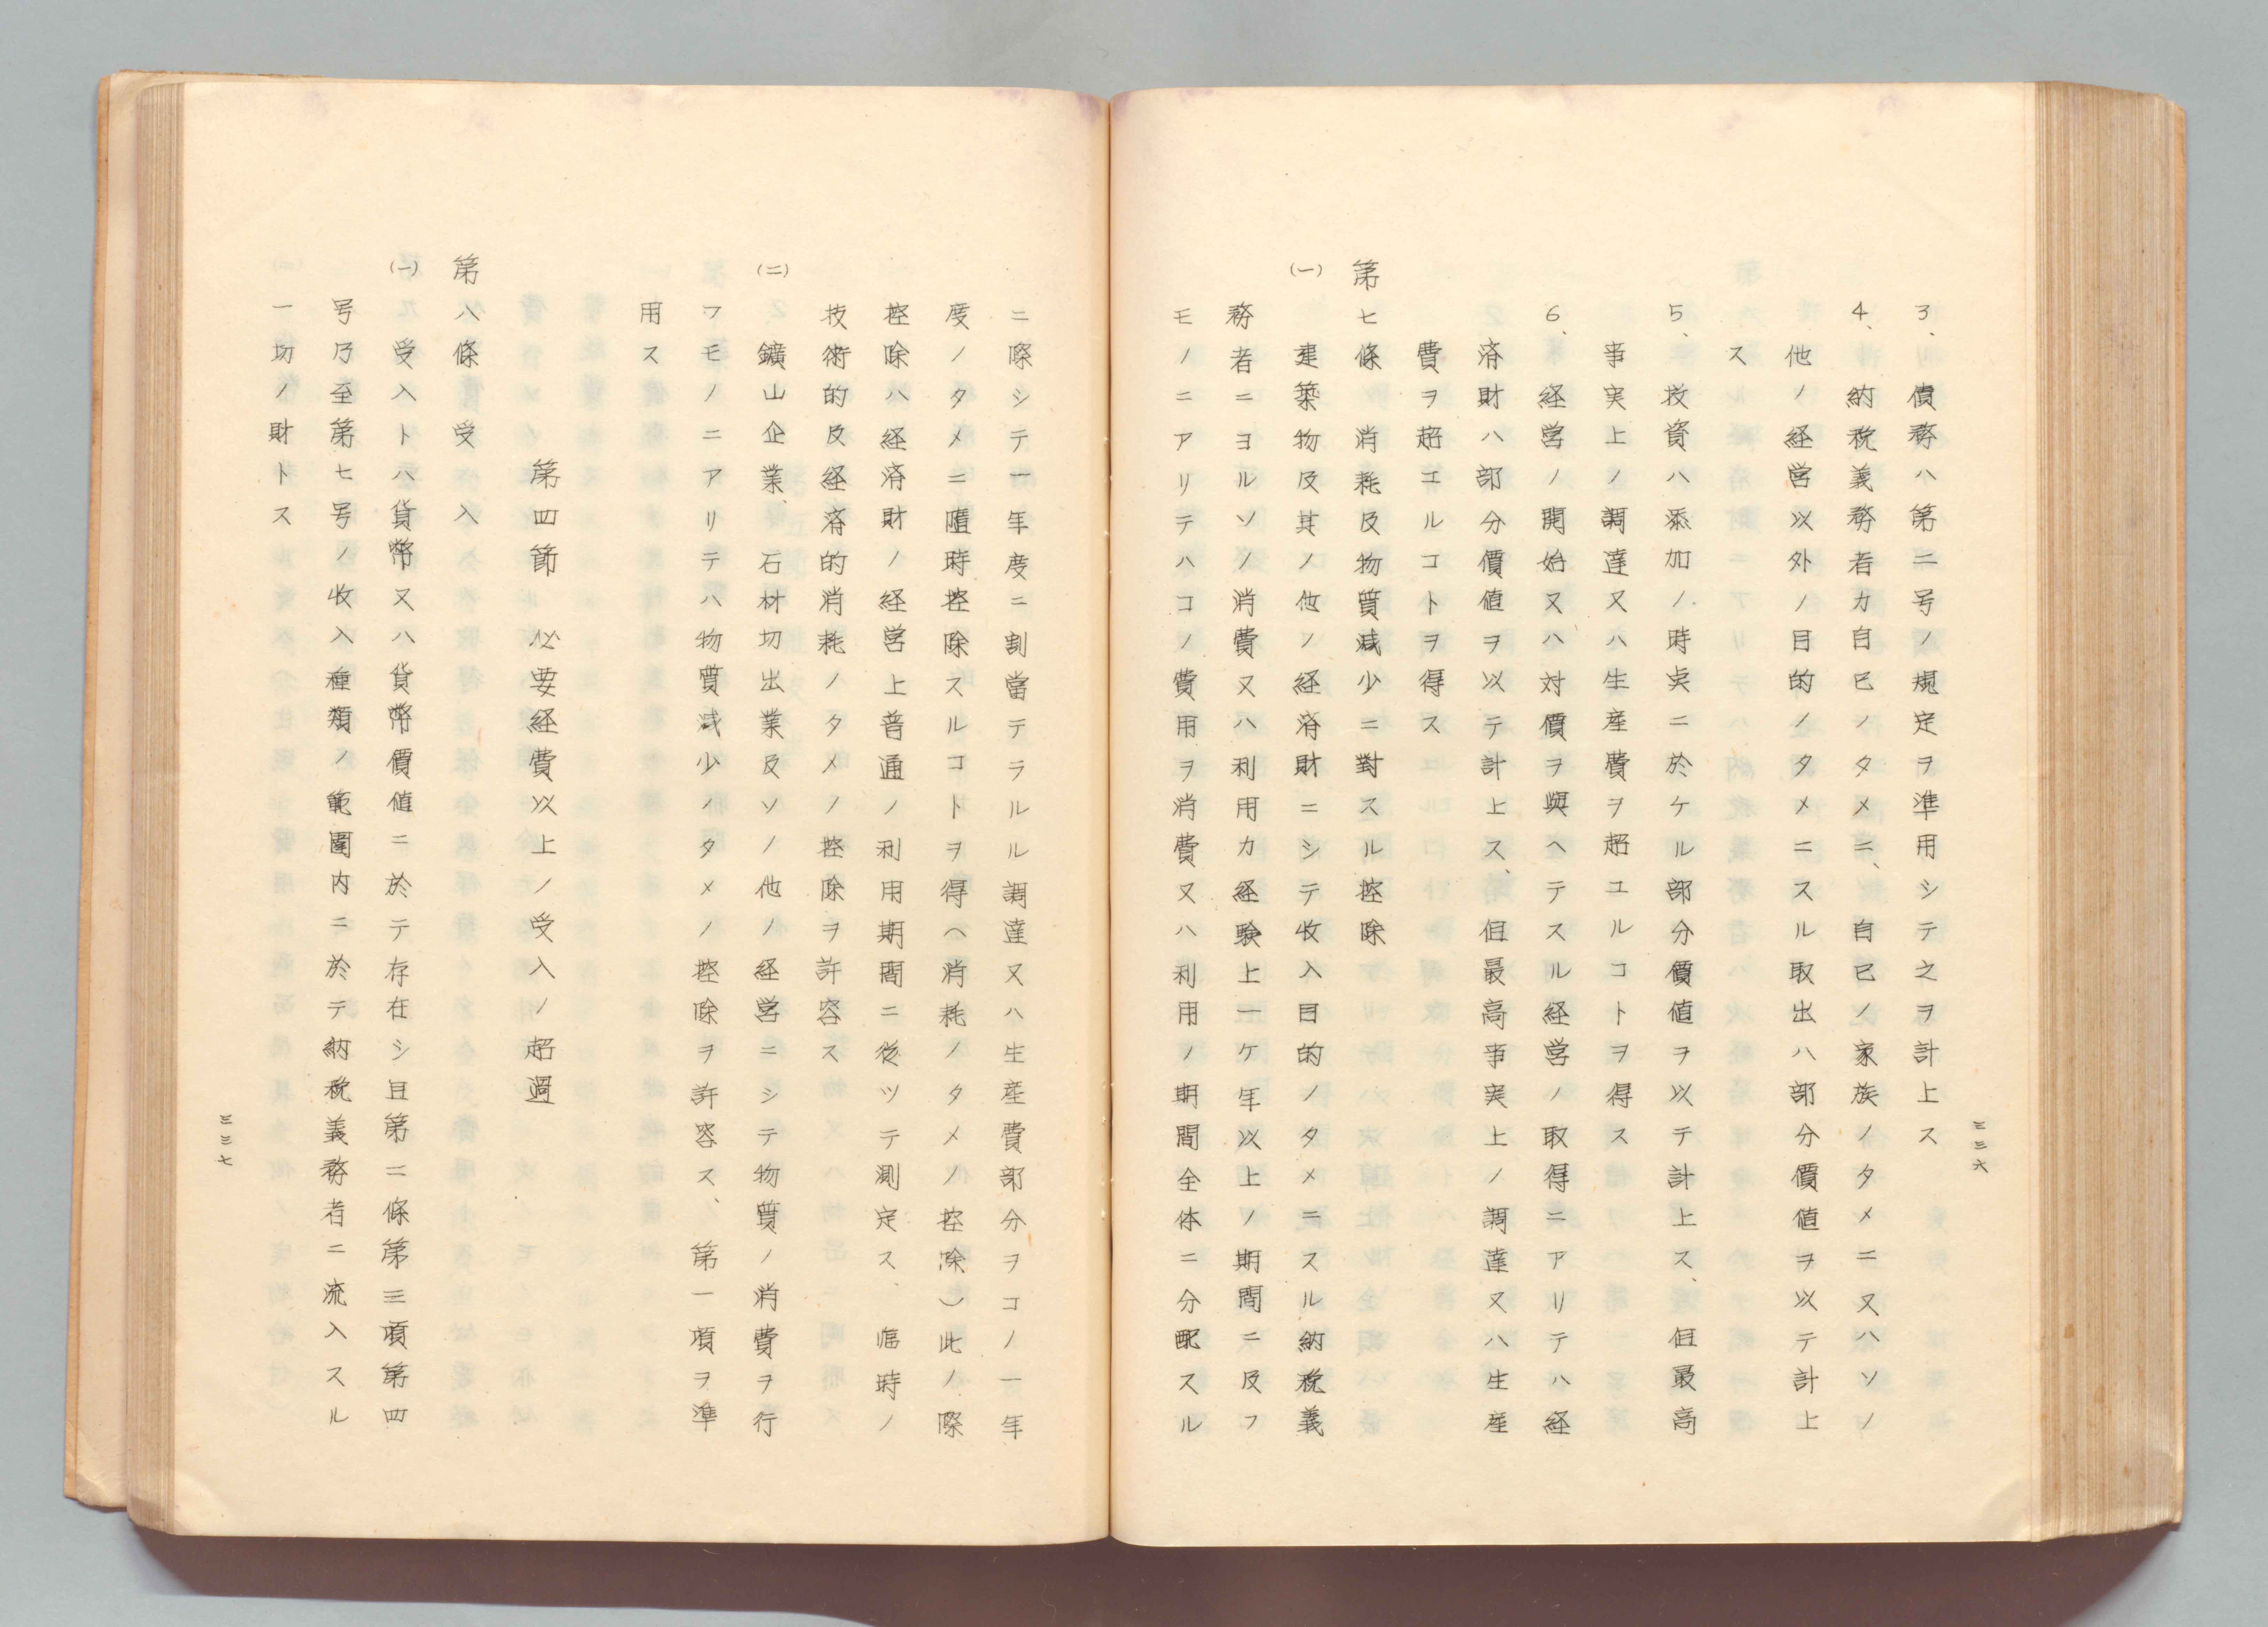 三三六
3、債務ハ第二号ノ規定ヲ準用シテ之ヲ計上ス
4、納税義務者カ自己ノタメニ、自己ノ家族ノタメニ又ハソノ
他ノ経営以外ノ目的ノタメニスル取出ハ部分價値ヲ以テ計上
ス
5、投資ハ添加ノ時実ニ於ケル部分價値ヲ以テ計上ス、但最高
事実上ノ調達又ハ生産費ヲ超ユルコトヲ得ス
6、経営ノ開始又ハ対價ヲ與ヘテスル経営ノ取得ニアリテハ経
済財ハ部分價値ヲ以テ計上ス、但最高事実上ノ調達又ハ生産
費ヲ超エルコトヲ得ス
第七條 消耗及物質減少ニ對スル控除
(一) 建築物及其ノ他ノ経済財ニシテ收入目的ノタメニスル納税義
務者ニヨルソノ消費又ハ利用カ経験上一ケ年以上ノ期間ニ及フ
モノニアリテハコノ費用ヲ消費又ハ利用ノ期間全体ニ分配スル
ニ際シテ一年度ニ割當テラルル調達又ハ生産費部分ヲコノ一年
度ノタメニ隨時控除スルコトヲ得ヘ消耗ノタメノ控除)此ノ際
控除ハ経済財ノ経営上普通ノ利用期間ニ従ツテ測定ス、臨時ノ
技術的及経済的消耗ノタメノ控除ヲ許容ス
(二) 鑛山企業、石材切出業及ソノ他ノ経営ニシテ物質ノ消費ヲ行
フモノニアリテハ物質減少ノタメノ控除ヲ許容ス、第一項ヲ準
用ス
第四節 必要経費以上ノ受入ノ超過
第八條 受入
(一) 受入トハ貨幣又ハ貨幣價値ニ於テ存在シ且第二條第三項第四
号乃至第七号ノ收入種類ノ範圍内ニ於テ納税義務者ニ流入スル
一切ノ財トス
三三七